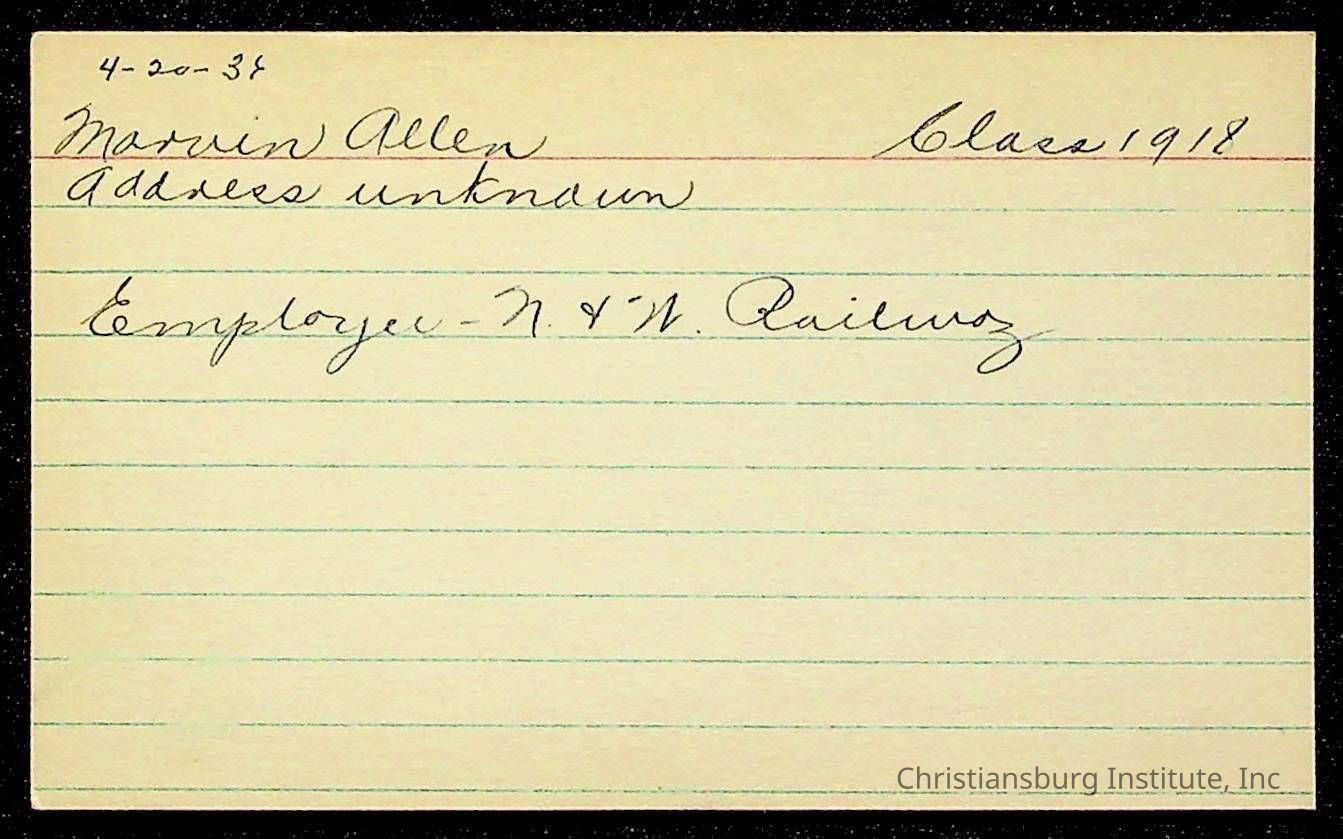 4-20-38
Marvin Allen Class 1918
Address unknown
Employee - N. & W. Railway
Christiansburg Institute, Inc